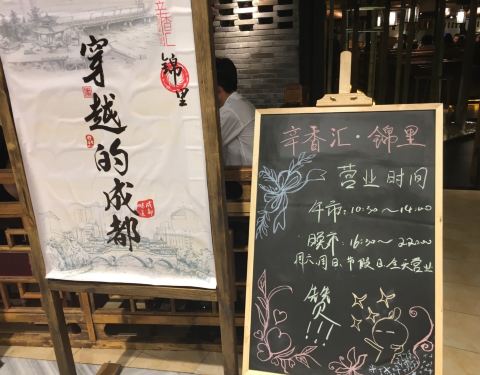 辛香汇
锦里
穿越的成都
成都
辛香汇·锦里
营业时间
午市:10:30～14:00
晚市:16:30～22:00
周六、周日、节假日全天营业
赞!!!